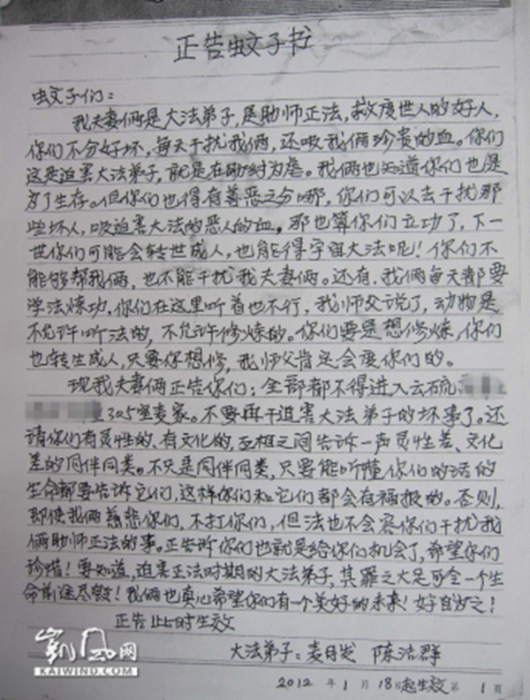 正告蚊子书
蚊子们：
我夫妻俩是大法弟子，是助师正法，救度世人的好人，
你们不分好坏，每天干扰我俩，还吸我俩珍贵的血。你们
这是迫害大法弟子，就是在助纣为虐。我俩也知道你们也是
为了生存。但你们也得有善恶之分哪，你们可以去干扰那
些坏人，吸迫害大法的恶人的血。那也算你们立功了，下一
世你们可能会转世成人，也能得宇宙大法呢！你们不
能够帮我俩，也不能干扰我夫妻俩。还有，我俩每天都要
学法炼功，你们在这里听着也不行，我师父说了，动物是
不允许听法的，不允许修炼的。你们要是想修炼，你们
也转生成人，只要你想修，我师父肯定会度你们的。
现我夫妻俩正告你们：全部都不得进入云硫
305室麦家。不要再干迫害大法弟子的坏事了。还
请你们有灵性的、有文化的，互相之间告诉一声灵性差、文化
差的同伴同类。不只是同伴同类，只要能听懂你们的话的
生命都要告诉它们，这样你们和它们都会有福报的。否则，
即使我俩慈悲你们，不打你们，但法也不会容你们干扰我
俩助师正法的事。正告你们也就是给你们机会了，希望你们
珍惜！要知道，迫害正法时期的大法弟子，其罪之大足可令一个生
命前途尽毁！我俩也真心希望你们有一个美好的未来！好自为之！
正告此时生效
大法弟子：麦 陈洁群
2012 年 1 月 18日起生效 第 1 页
凯风网
KAIWIND.COM